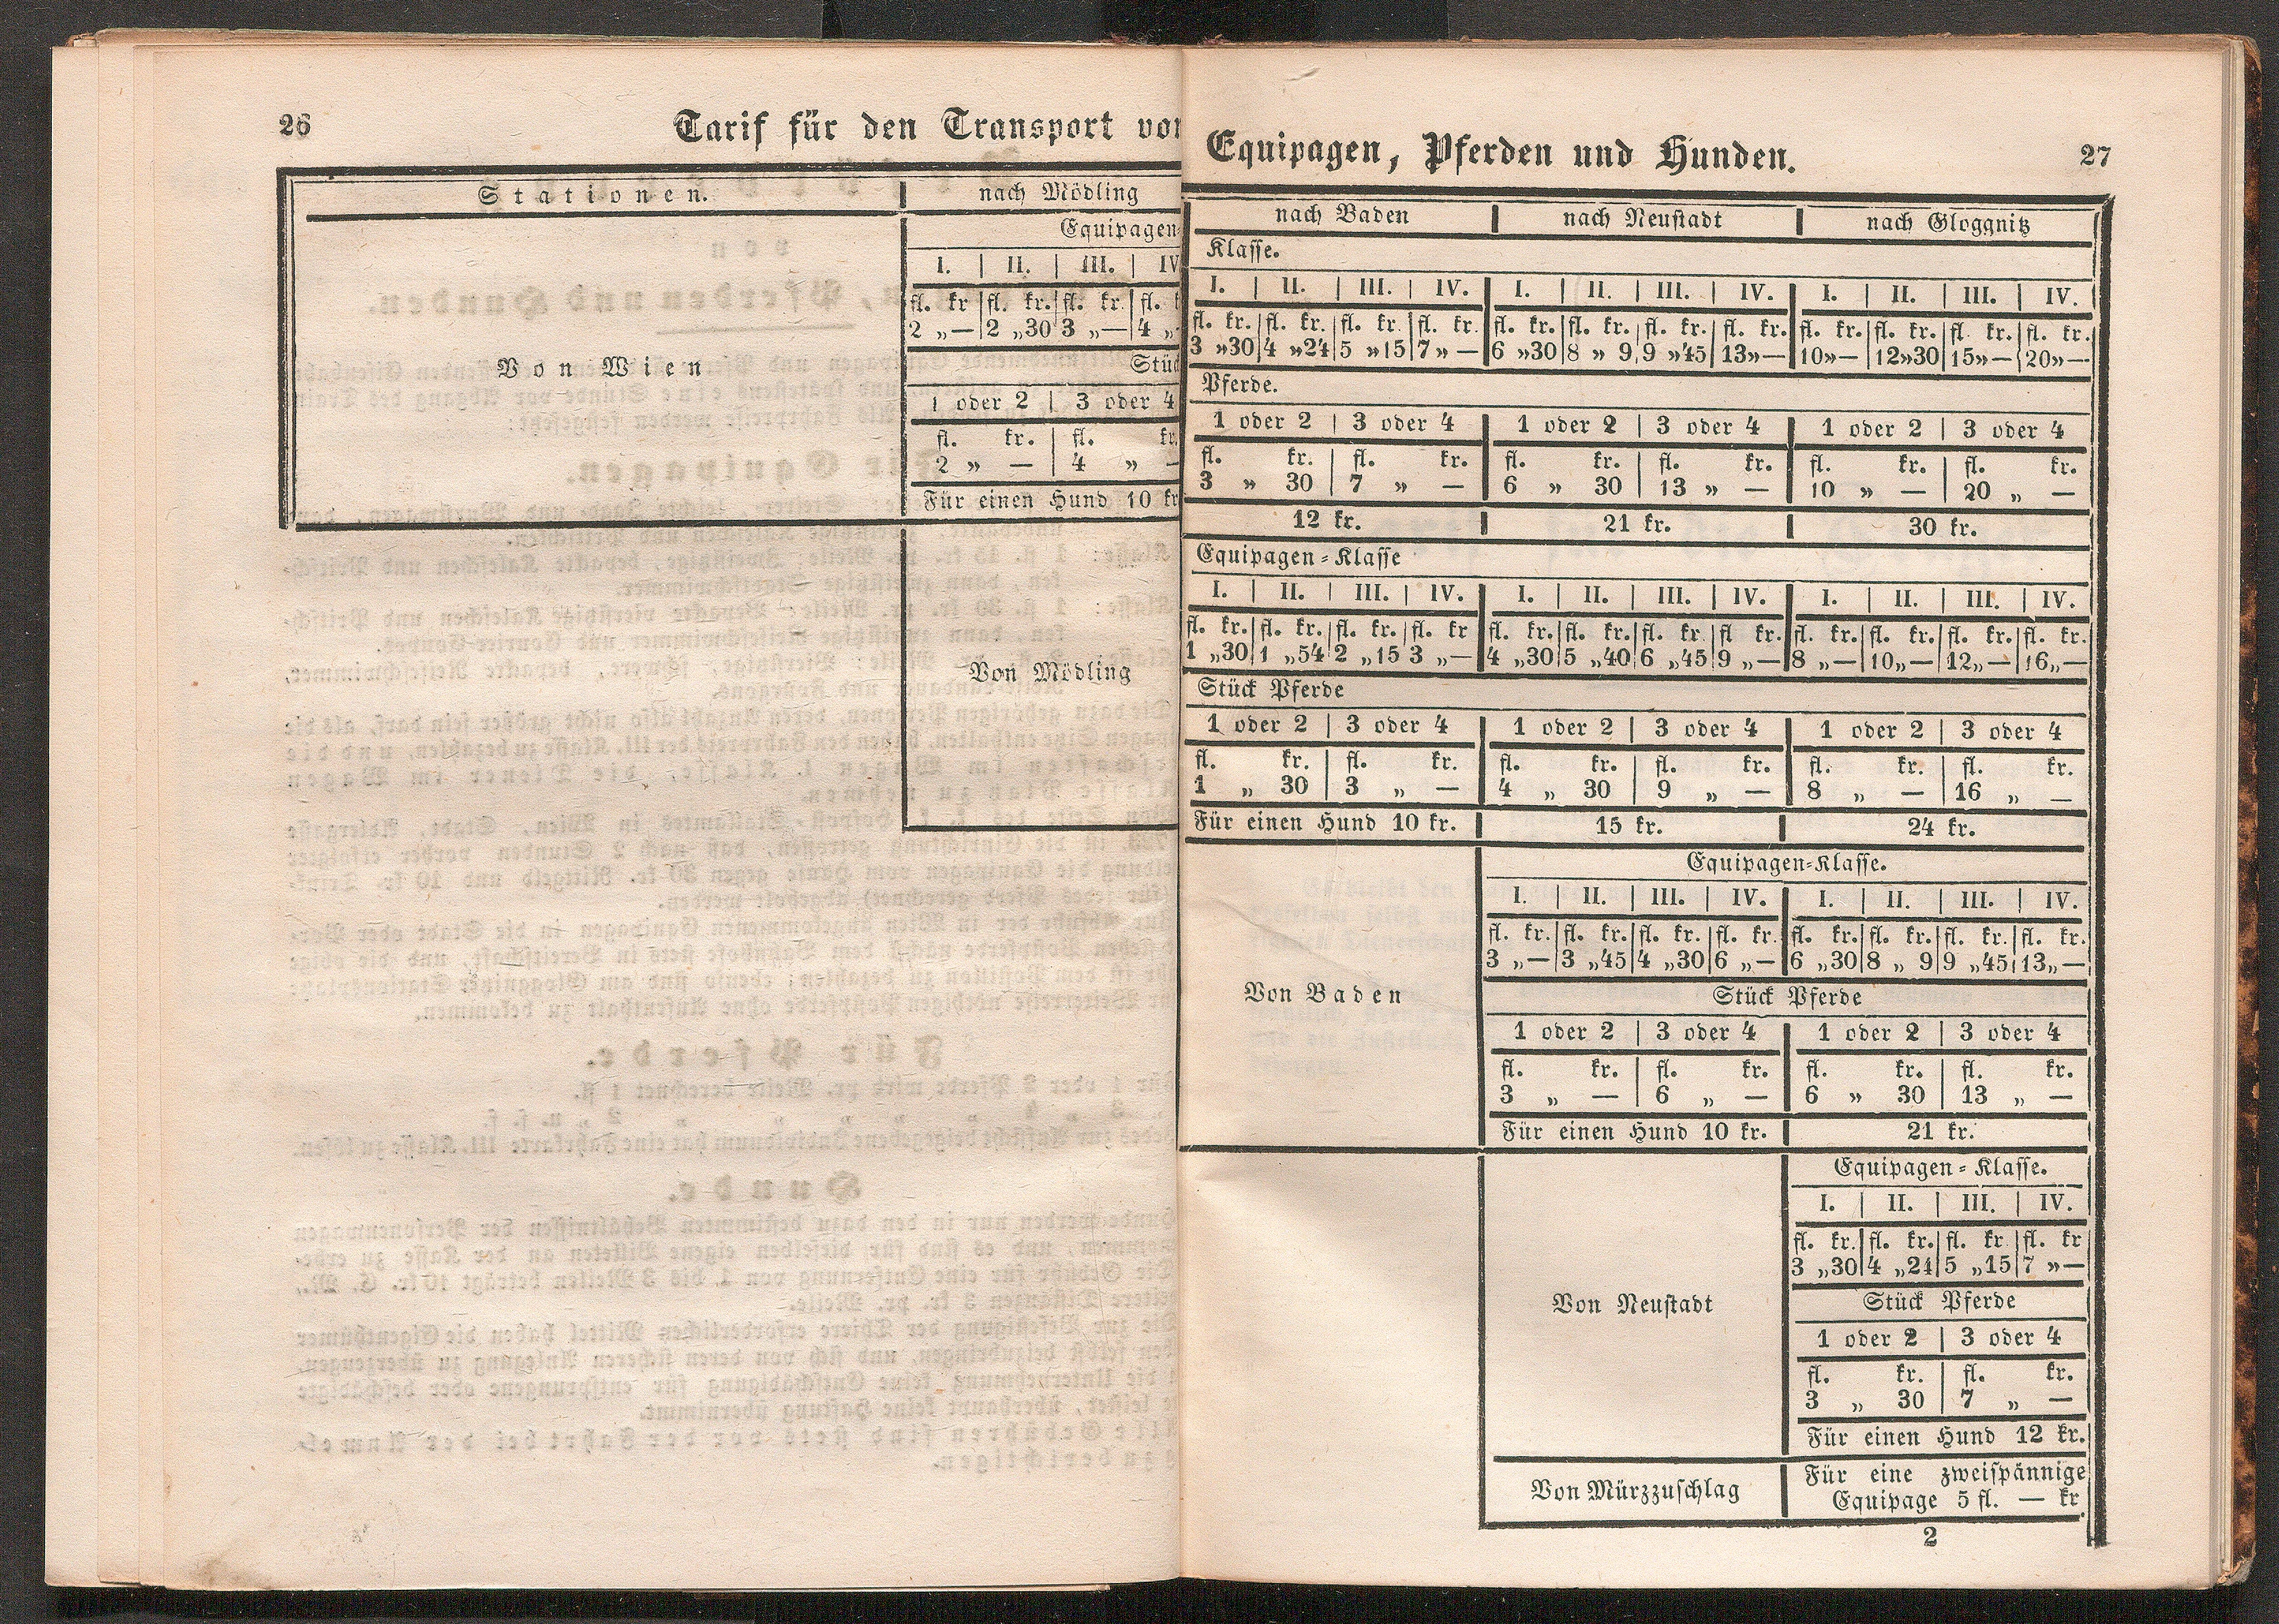 26
Tarif für den Transport von
Stationen. | nach Mödling
Equipagen-
I. | II. | III. | IV
fl. kr | fl. kr. | fl. kr | fl.
2 „ — | 2 „ 30 | 3 „ — | 4 „
Von Wien
Stüc
1 oder 2 | 3 oder 4
fl. kr. | fl. kr.
2 „ — | 4 „ —
Für einen Hund 10 kr
Von Mödling
Equipagen, Pferden und Hunden. 27
nach Baden | nach Neustadt | nach Gloggnitz
Klasse.
I. | II. | III. | IV. | I. | II. | III. | IV. | I. | II. | III. | IV.
fl. kr. | fl. kr. | fl. kr. | fl. kr. | fl. kr. | fl. kr. | fl. kr. | fl. kr. | fl. kr. | fl. kr. | fl. kr. | fl. kr.
3 „ 30 | 4 „ 24 | 5 „ 15 | 7 „ — | 6 „ 30 | 8 „ 9 | 9 „ 45 | 13 „ — | 10 „ — | 12 „ 30 | 15 „ — | 20 „ —
Pferde.
1 oder 2 | 3 oder 4 | 1 oder 2 | 3 oder 4 | 1 oder 2 | 3 oder 4
fl. kr. | fl. kr. | fl. kr. | fl. kr. | fl. kr. | fl. kr.
3 „ 30 | 7 „ — | 6 „ 30 | 13 „ — | 10 „ — | 20 „ —
12 kr. | 21 kr. | 30 kr.
Equipagen-Klasse
I. | II. | III. | IV. | I. | II. | III. | IV. | I. | II. | III. | IV.
fl. kr. | fl. kr. | fl. kr. | fl. kr | fl. kr. | fl. kr. | fl. kr | fl kr. | fl. kr. | fl. kr. | fl. kr. | fl. kr.
1 „ 30 | 1 „ 54 | 2 „ 15 | 3 „ — | 4 „ 30 | 5 „ 40 | 6 „ 45 | 9 „ — | 8 „ — | 10 „ — | 12 „ — | 16 „ —
Stück Pferde
1 oder 2 | 3 oder 4 | 1 oder 2 | 3 oder 4 | 1 oder 2 | 3 oder 4
fl. kr. | fl. kr. | fl. kr. | fl. kr. | fl. kr. | fl. kr.
1 „ 30 | 3 „ — | 4 „ 30 | 9 „ — | 8 „ — | 16 „ —
Für einen Hund 10 kr. | 15 kr. | 24 kr.
Von Baden
Equipagen-Klasse.
I. | II. | III. | IV. | I. | II. | III. | IV.
fl. kr. | fl. kr. | fl. kr. | fl. kr. | fl. kr. | fl. kr. | fl. kr. | fl. kr.
3 „ — | 3 „ 45 | 4 „ 30 | 6 „ — | 6 „ 30 | 8 „ 9 | 9 „ 45 | 13 „ —
Stück Pferde
1 oder 2 | 3 oder 4 | 1 oder 2 | 3 oder 4
fl. kr. | fl. kr. | fl. kr. | fl. kr.
3 „ — | 6 „ — | 6 „ 30 | 13 „ —
Für einen Hund 10 kr. | 21 kr.
Von Neustadt
Equipagen-Klasse.
I. | II. | III. | IV.
fl. kr. | fl. kr. | fl. kr | fl. kr
3 „ 30 | 4 „ 24 | 5 „ 15 | 7 „ —
Stück Pferde
1 oder 2 | 3 oder 4
fl. kr. | fl. kr.
3 „ 30 | 7 „ —
Für einen Hund 12 kr.
Von Mürzzuschlag | Für eine zweispännige
Equipage 5 fl. — kr.
2